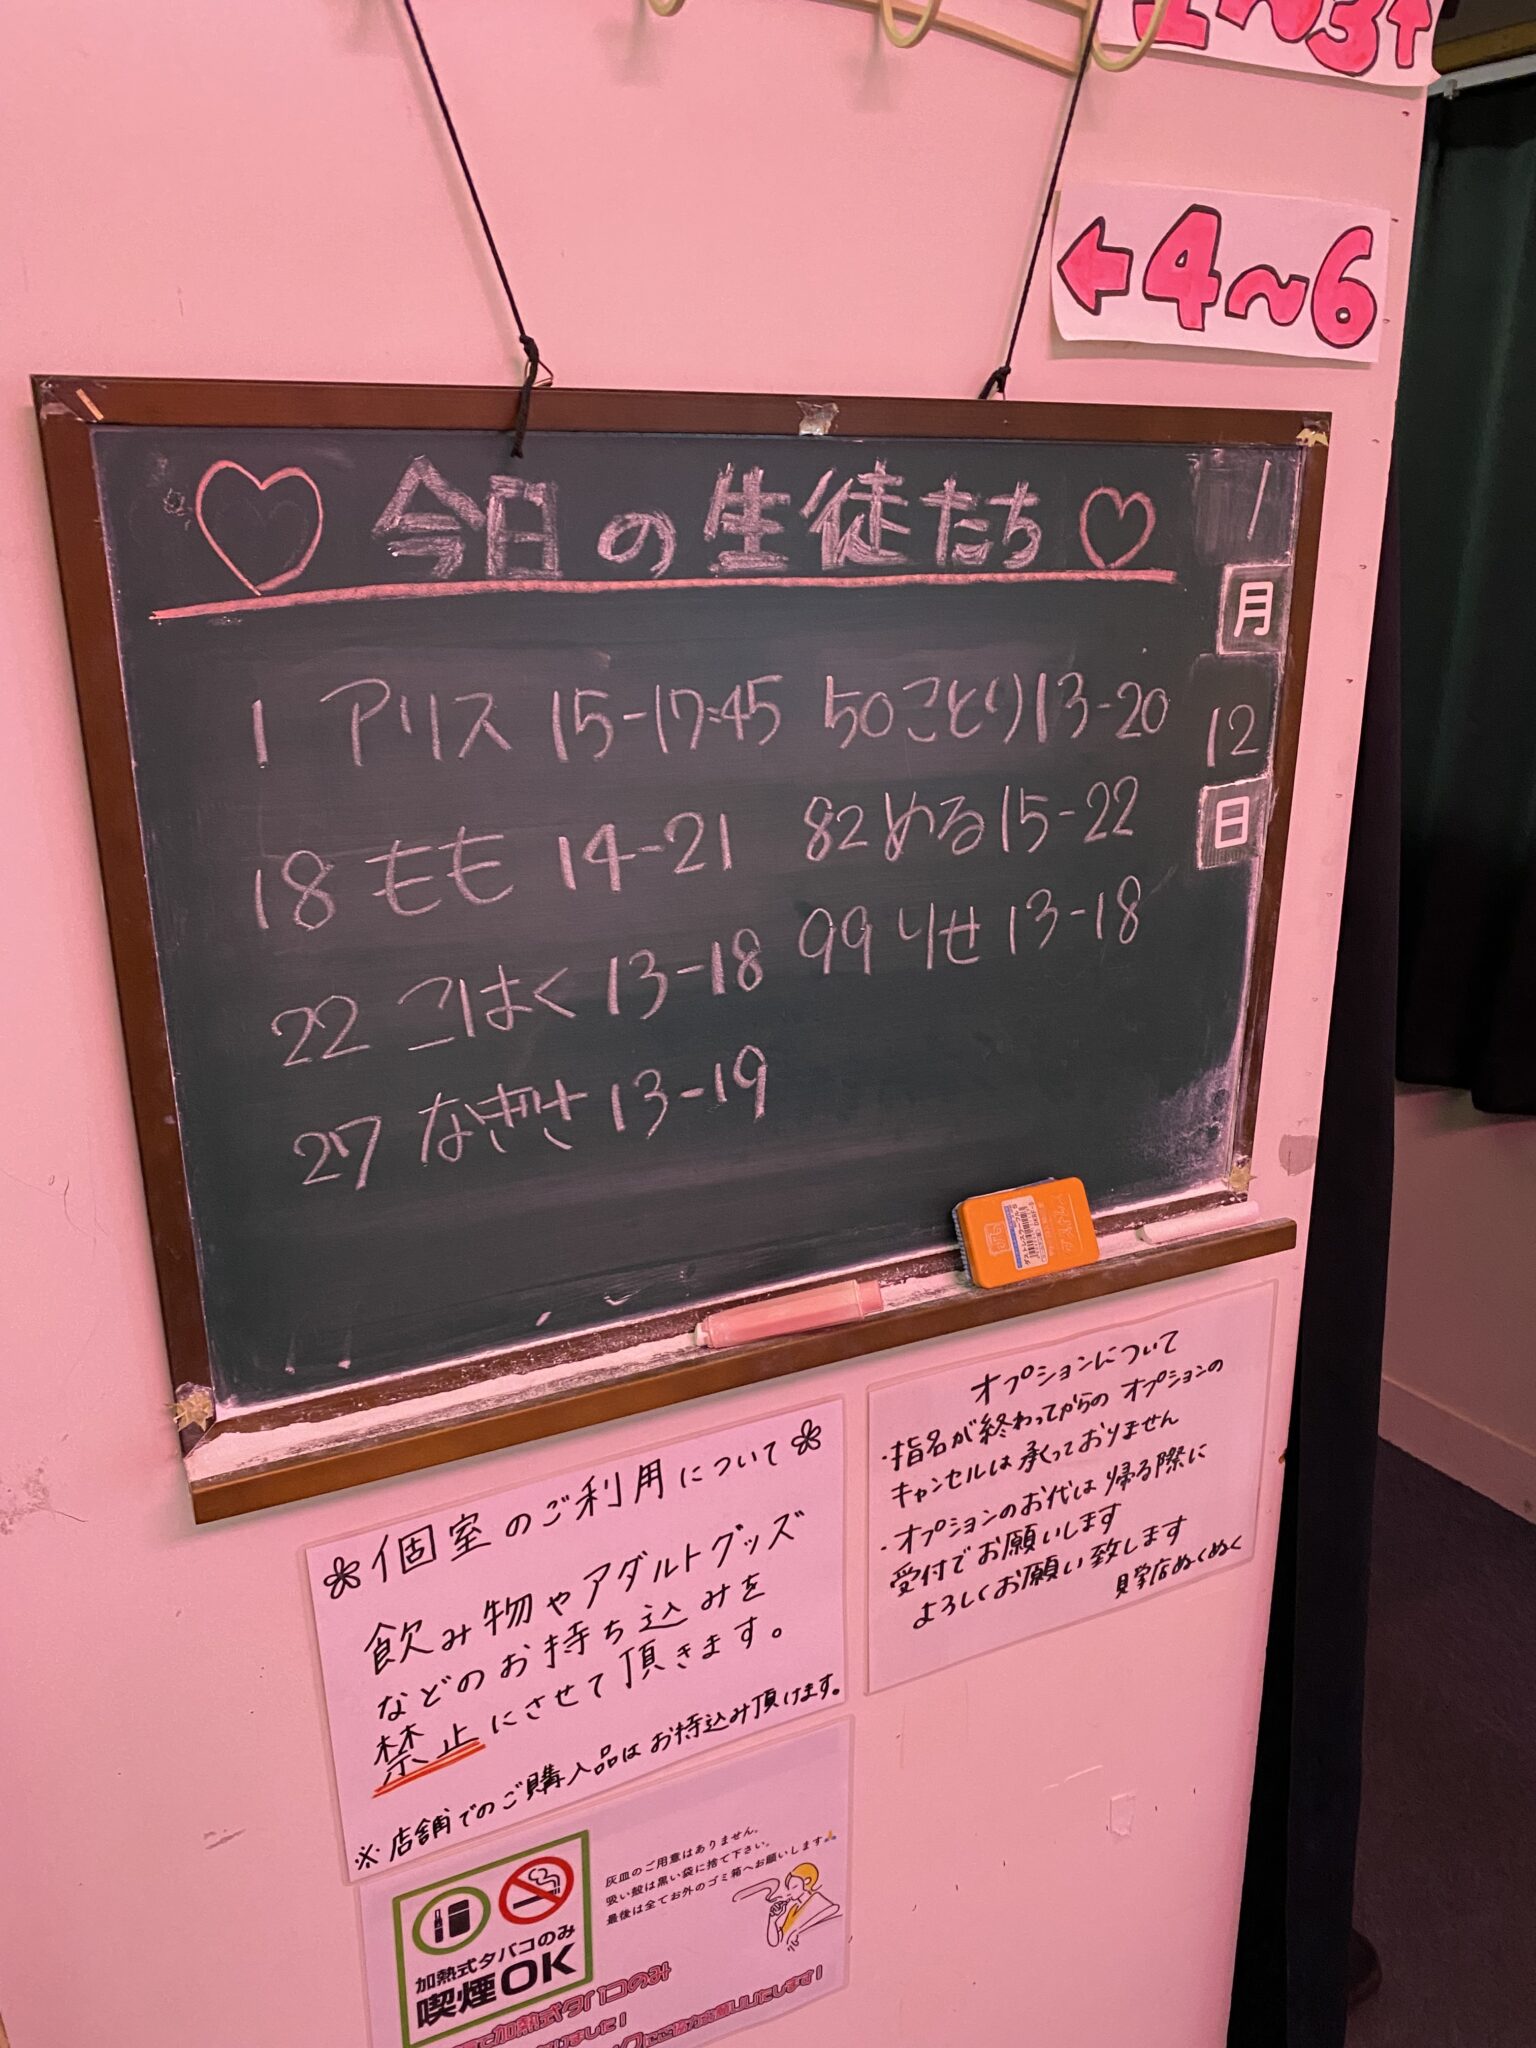 1~3↑
←4~6
今日の生徒たち
1月12日
1 アリス 15-17:45
18 もも 14-21
22 こはく 13-18
27 なぎさ 13-19
50 ことり 13-20
82 める 15-22
99 りせ 13-18
オプションについて
・指名が終わってからのオプションの
キャンセルは承っておりません
・オプションのお代は帰る際に
受付でお願いします
よろしくお願い致します
見学店ぬくぬく
個室のご利用について
飲み物やアダルトグッズ
などのお持ち込みを
禁止にさせて頂きます。
※店舗でのご購入品はお持込み頂けます。
灰皿のご用意はありません。
吸い殻は黒い袋に捨て下さい。
最後は全てお外のゴミ箱へお願いします🙏
加熱式タバコのみ
喫煙OK
加熱式タバコのみ
ました!
ご協力お願いいたします!